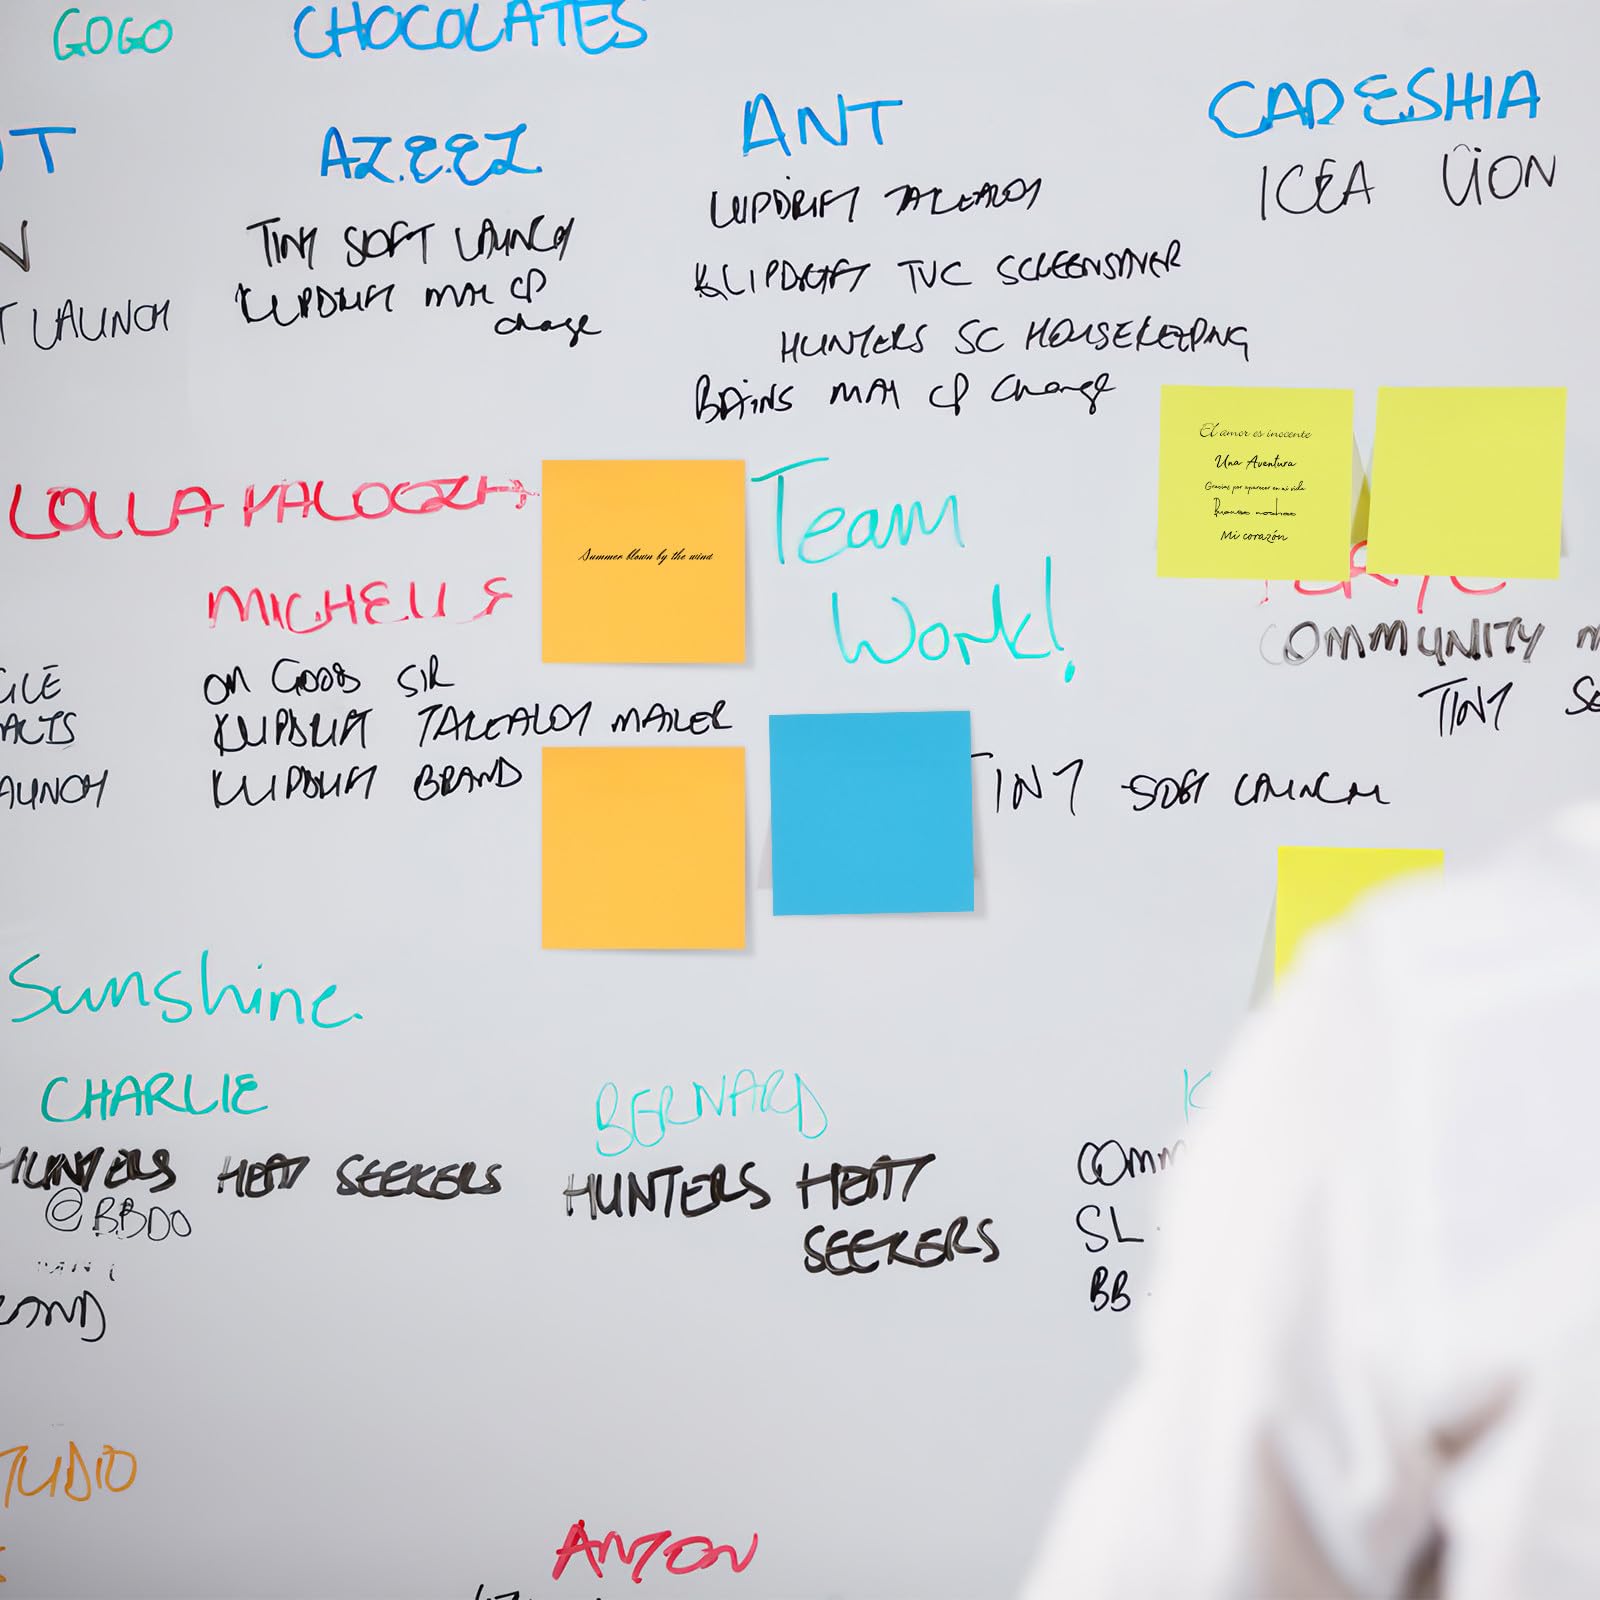 GOGO CHOCOLATES
AZEEZ
ANT
CADESHIA
TINY SOFT LAUNCH
KLIPDRIFT MAY CP
change
T LAUNCH
KLIPDRIFT TALEALOY
KLIPDRIFT TVC SCREENSAVER
HUNTERS SC HOUSEKEEPING
BAINS MAY CP Change
ICEA LION
LOLLA PALOOZA
MICHELLE
ON GOOD SIR
KLIPDRIFT TALEALOY MAILER
KLIPDRIFT BRAND
Summer blown by the wind
Team
Work!
El amor es inocente
Una Aventura
Gracias por aparecer en mi vida
Buenas noches
Mi corazón
COMMUNITY
TINY
TINY SOFT LAUNCH
Sunshine
CHARLIE
HUNTERS HEAT SEEKERS
@BBDO
BERNARD
HUNTERS HEAT
SEEKERS
K
COMM
SL
BB
TUDIO
ANTON